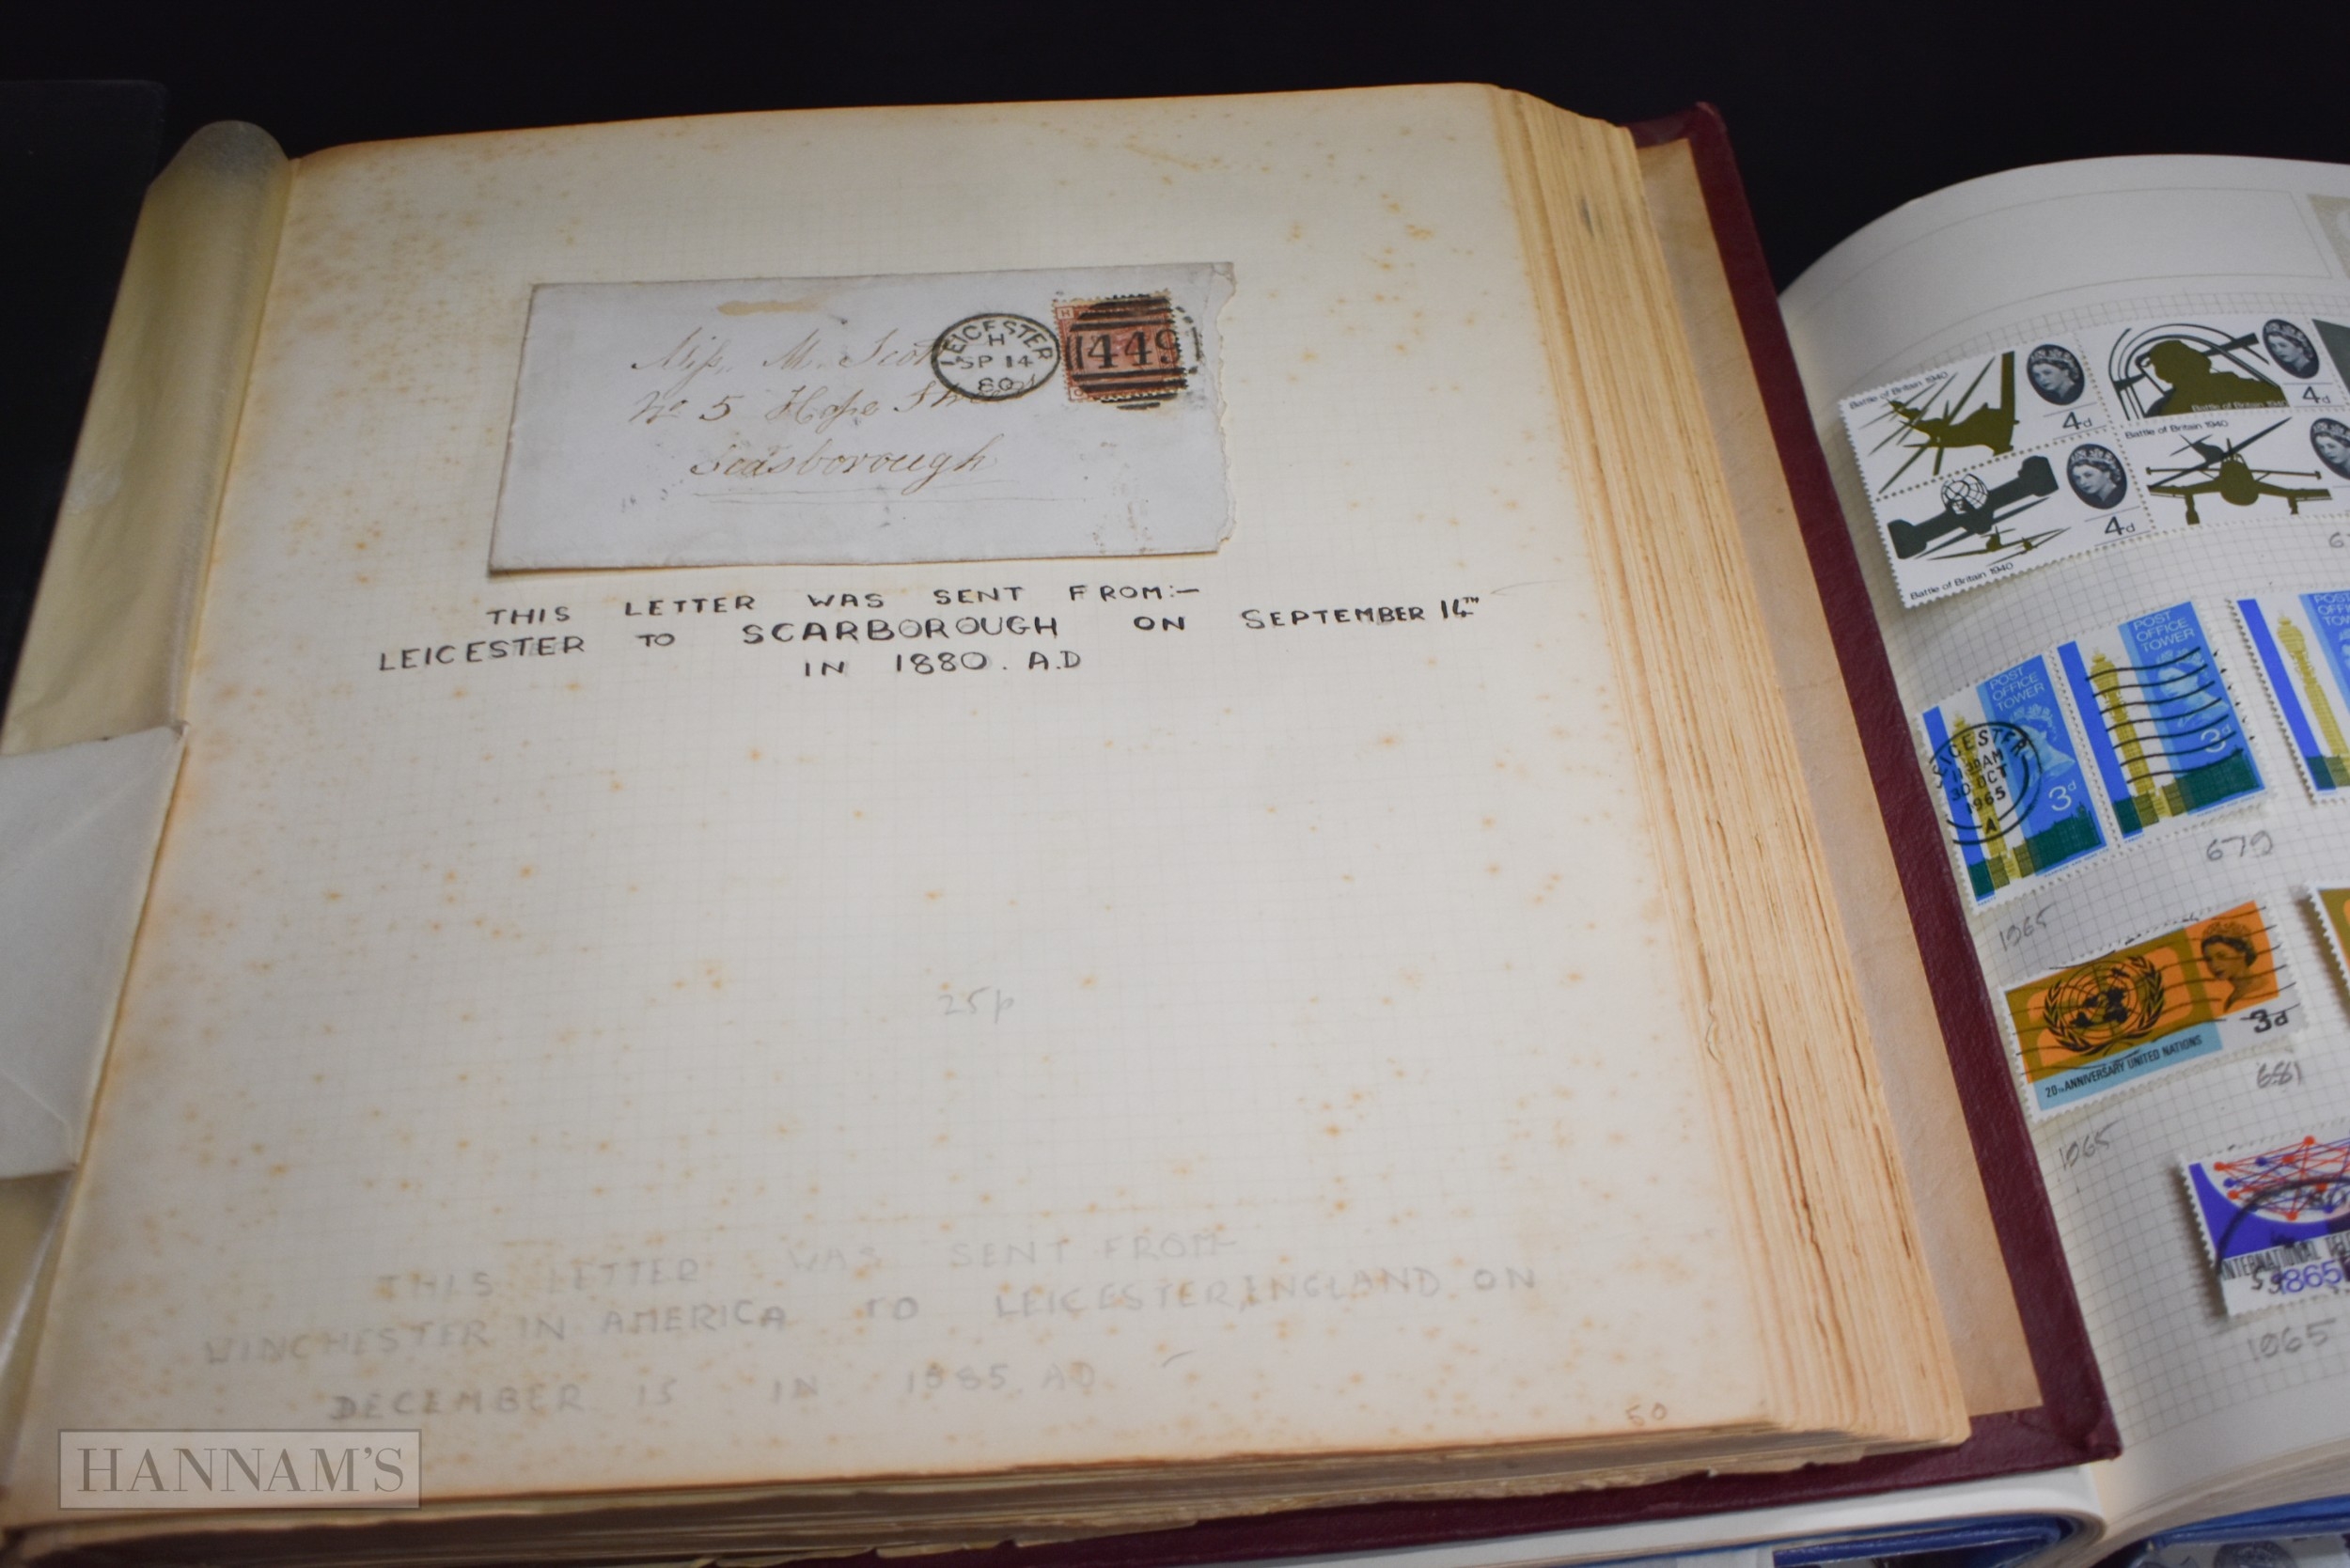 Miss. M. Scot
No 5 Hope Street
Scarborough
LEICESTER
H
SP 14
80
H
449
THIS LETTER WAS SENT FROM:-
LEICESTER TO SCARBOROUGH ON SEPTEMBER 14TH
IN 1880. A.D
25p
THIS LETTER WAS SENT FROM-
WINCHESTER IN AMERICA TO LEICESTER, ENGLAND ON
DECEMBER 15 IN 1885. AD
50
HANNAM'S
Battle of Britain 1940
4d
Battle of Britain 1940
4d
Battle of Britain 1940
4d
Battle of Britain 1940
POST
OFFICE
TOWER
3d
LEICESTER
11 30AM
30 OCT
1965
A
POST
OFFICE
TOWER
3d
679
1965
3d
20TH ANNIVERSARY UNITED NATIONS
681
1965
INTERNATIONAL
1865
1965